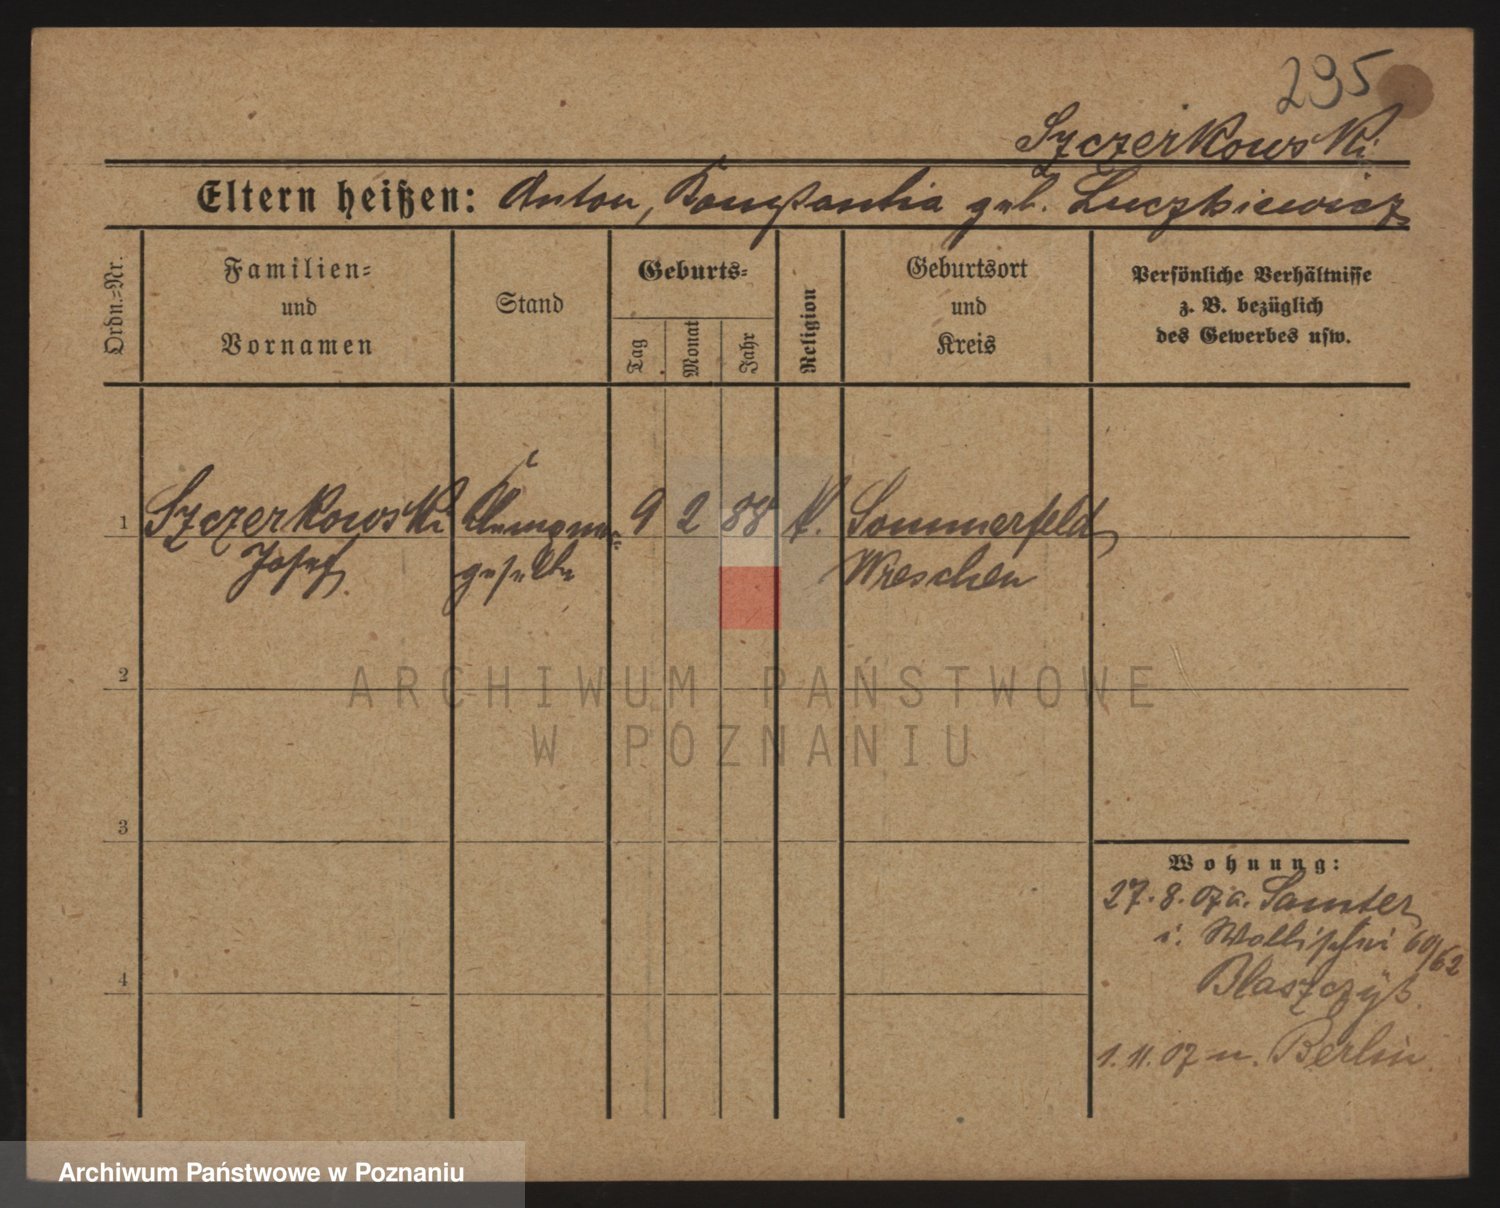 295
Szczerkowski
Eltern heißen: Anton, Konstantia geb. Luczkiewicz
Ordn.=Nr.
Familien=
und
Vornamen
Stand
Geburts=
Tag
Monat
Jahr
Religion
Geburtsort
und
Kreis
Persönliche Verhältnisse
z. B. bezüglich
des Gewerbes usw.
1 Szczerkowski 9 2 88 K. Sommerfeld
Josef. geselle Wreschen
2
ARCHIWUM PAŃSTWOWE
W POZNANIU
3
Wohnung:
27.8.07 a. Samter
i. Wallischei 60/62
Blaszczyk
4
1.11.07 n. Berlin
Archiwum Państwowe w Poznaniu